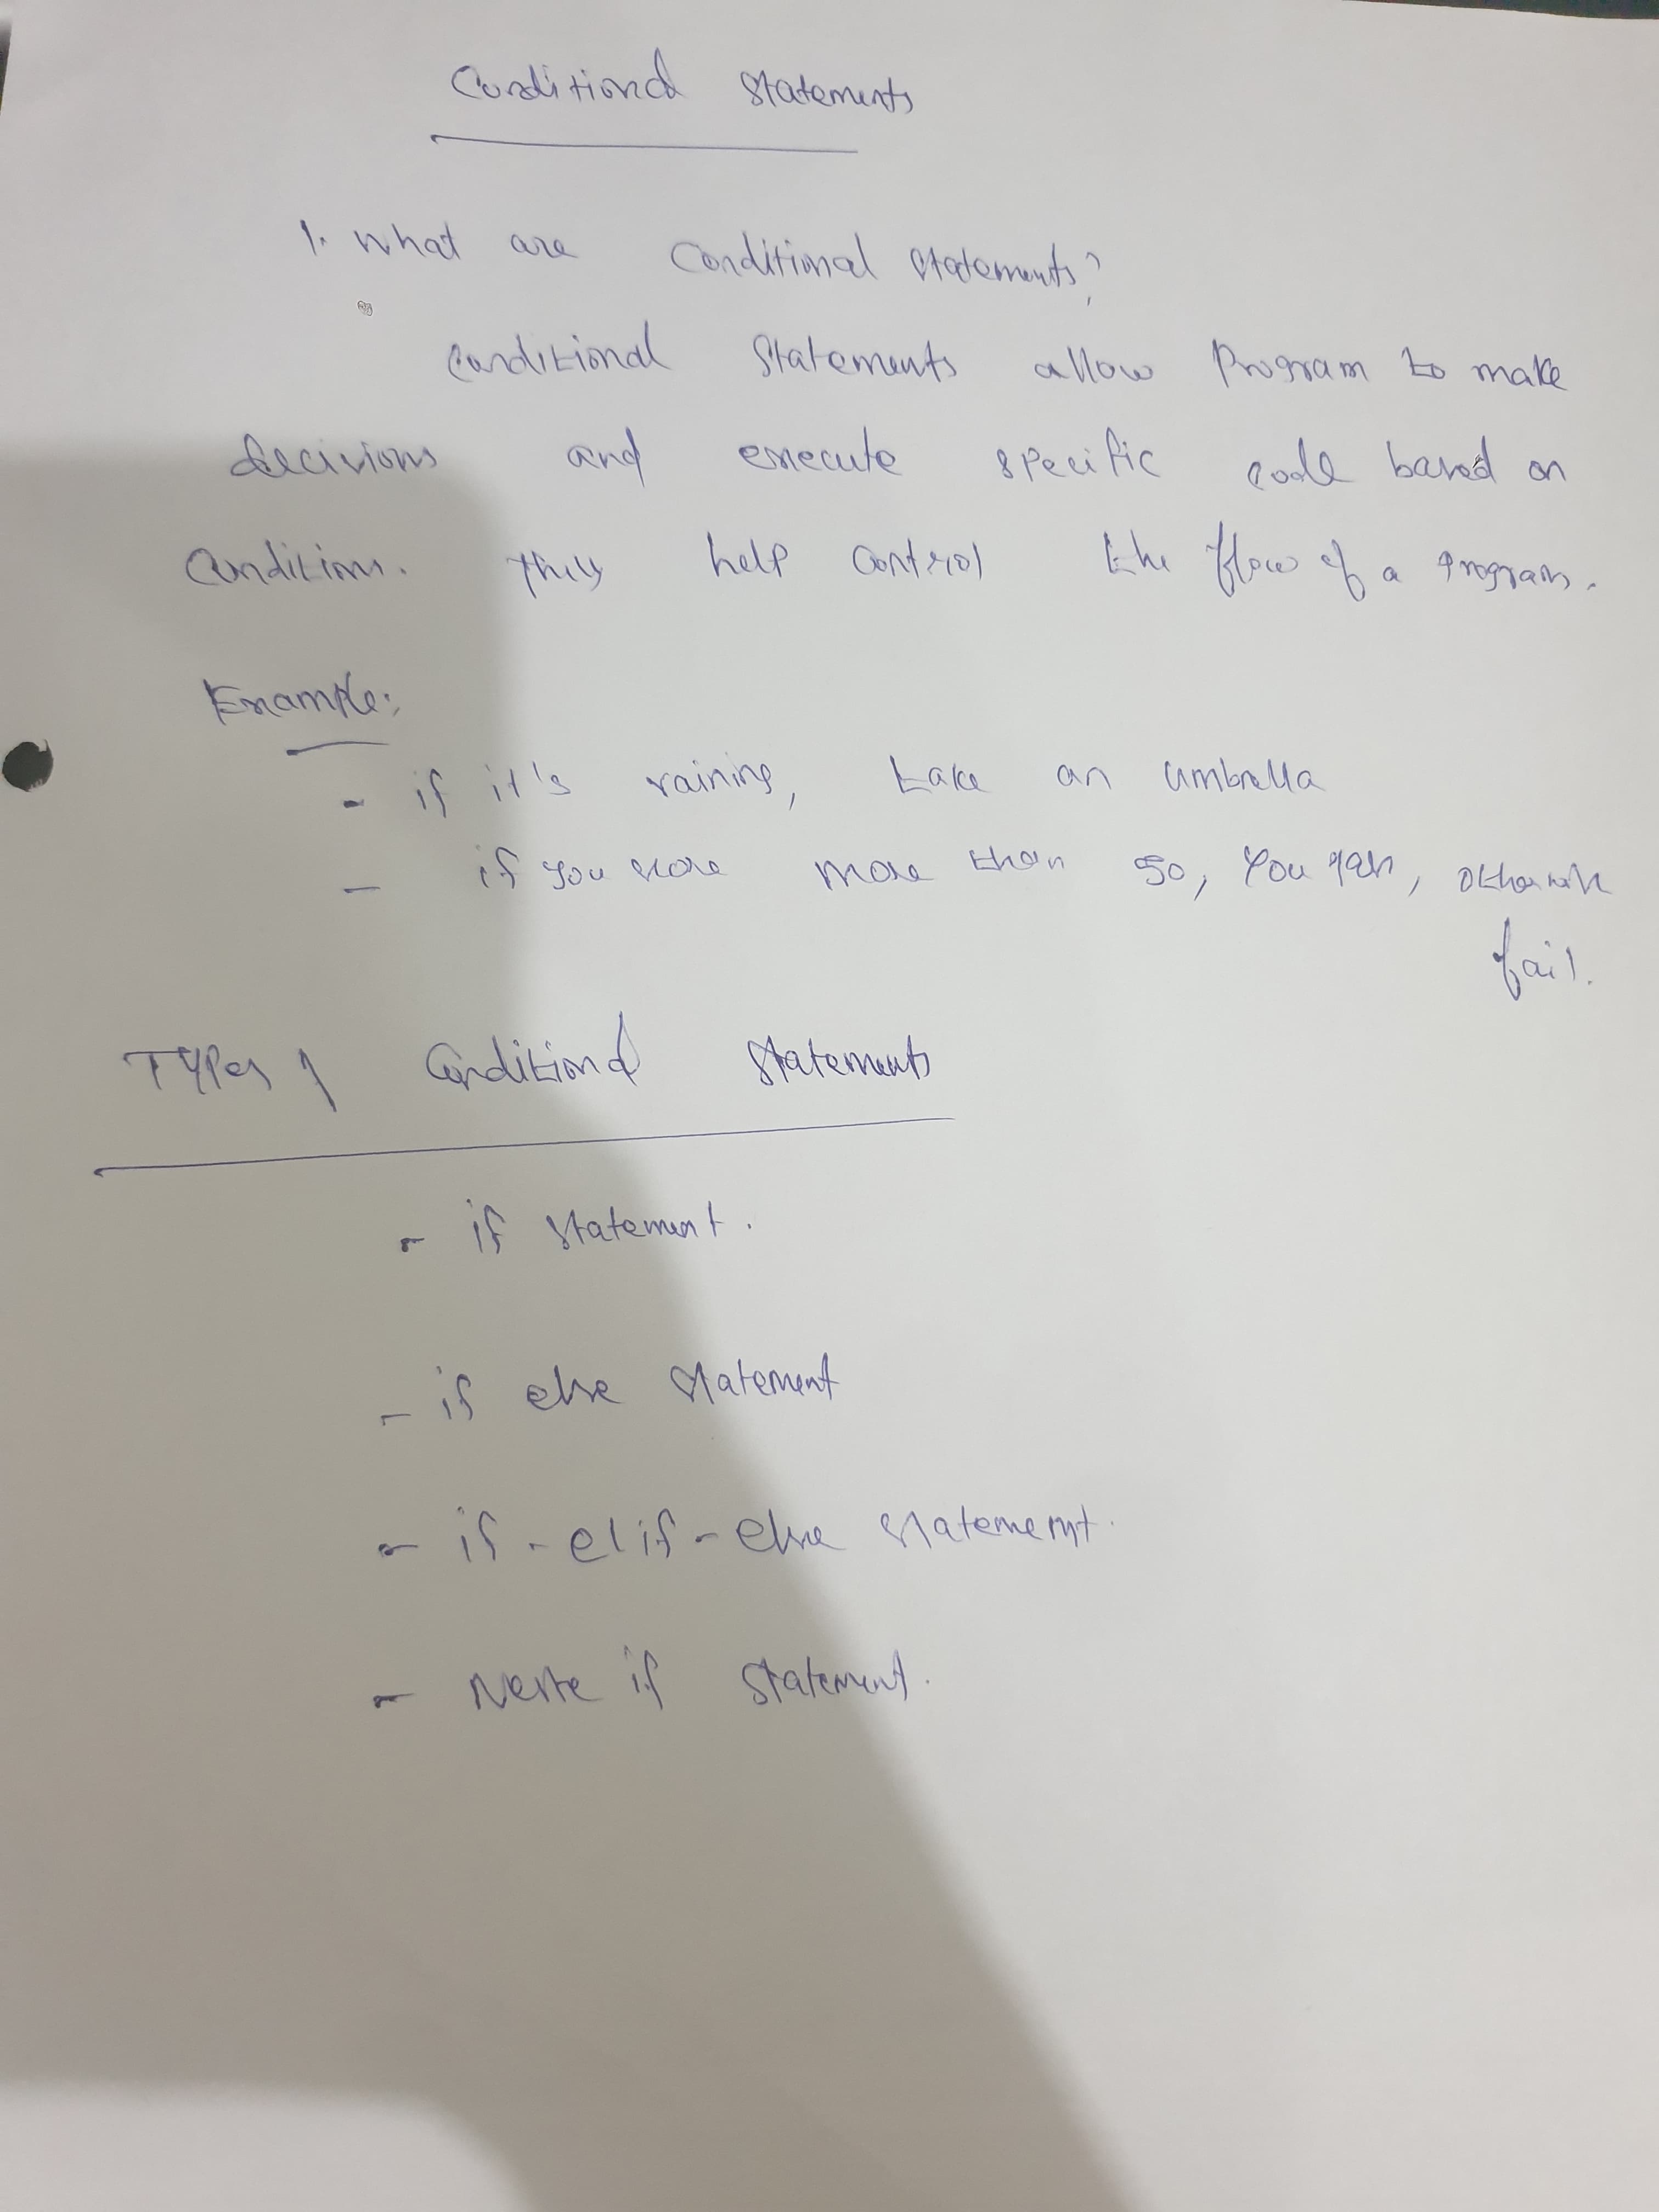 Conditional Statements
1. What are Conditional Statements?
Conditional Statements allow Program to make
decisions and execute specific code based on
Conditions. They help control the flow of a program.
Example:
- if it's raining, take an umbrella
- if you score more than 50, you pass, otherwise
fail.
Types of Conditional Statements
- if statement.
- if else statement
- if - elif - else statement.
- Neste if statement.